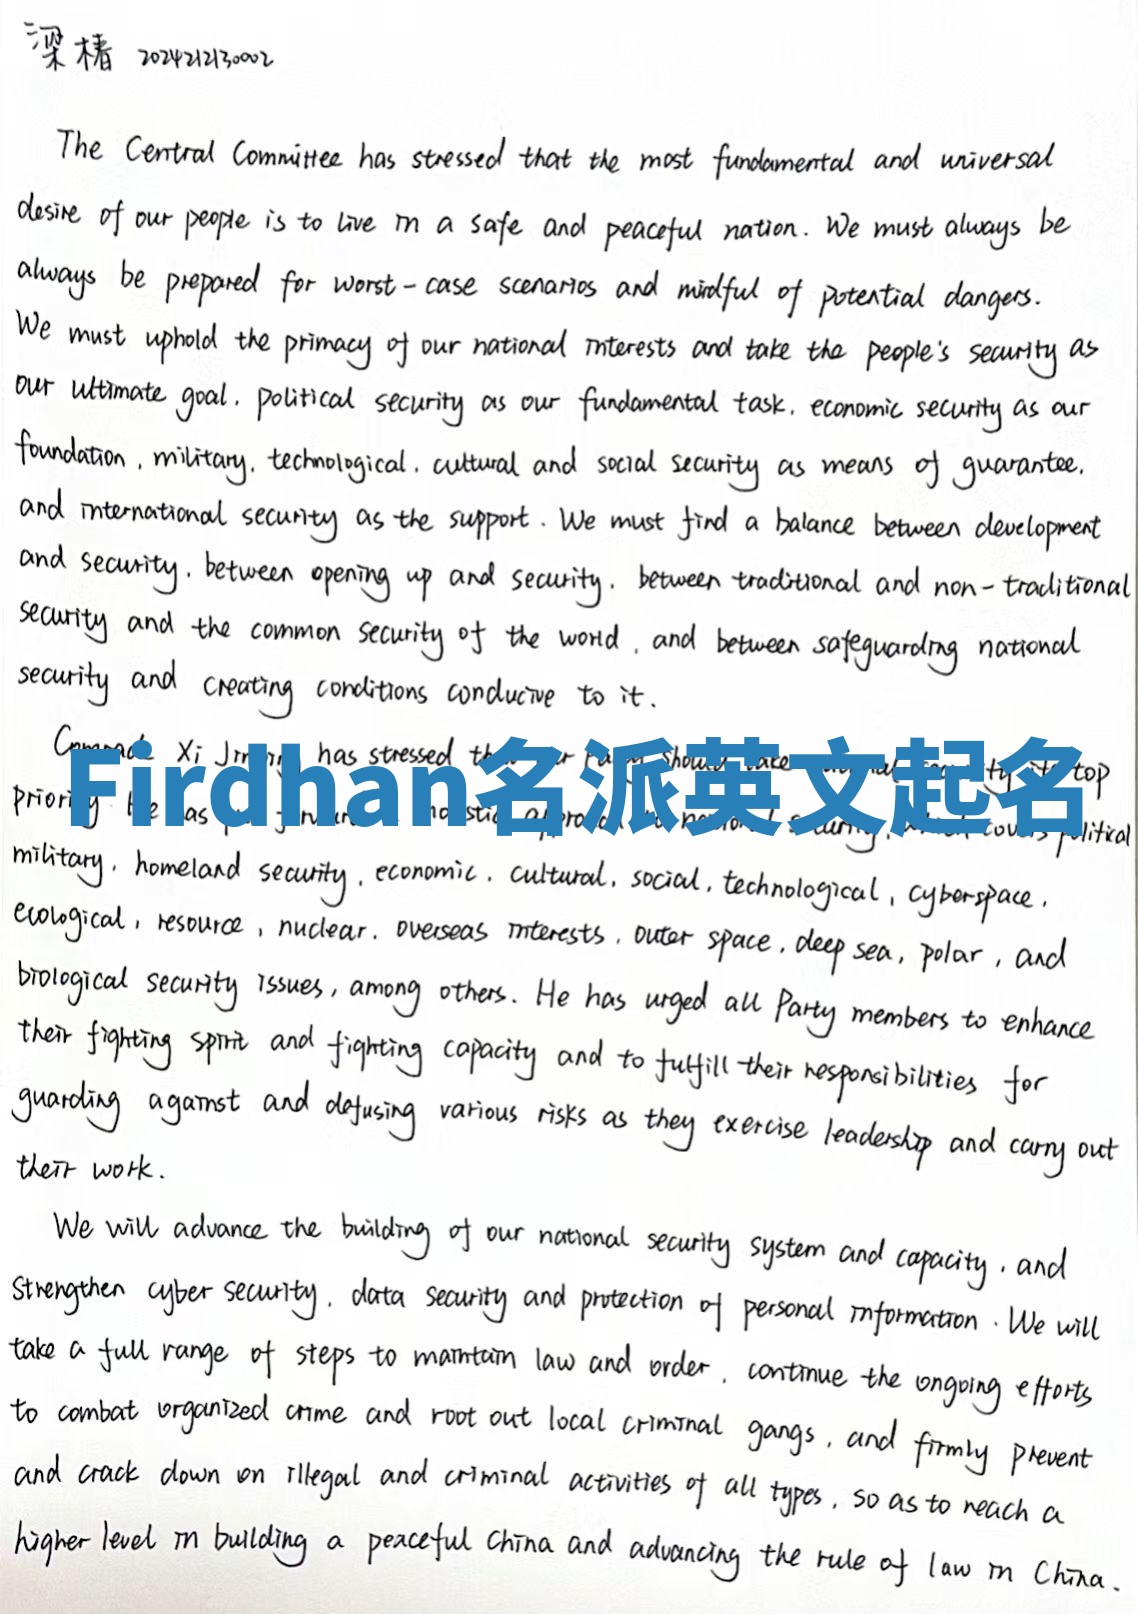 梁椿 2024212130002
The Central Committee has stressed that the most fundamental and universal
desire of our people is to live in a safe and peaceful nation. We must always be
always be prepared for worst-case scenarios and mindful of potential dangers.
We must uphold the primacy of our national interests and take the people's security as
our ultimate goal, political security as our fundamental task, economic security as our
foundation, military, technological, cultural and social security as means of guarantee,
and international security as the support. We must find a balance between development
and security, between opening up and security, between traditional and non-traditional
security and the common security of the world, and between safeguarding national
security and creating conditions conducive to it.
Xi has stressed top
Firdhan名派英文起名
political
military, homeland security, economic, cultural, social, technological, cyberspace,
ecological, resource, nuclear, overseas interests, outer space, deep sea, polar, and
biological security issues, among others. He has urged all Party members to enhance
their fighting spirit and fighting capacity and to fulfill their responsibilities for
guarding against and defusing various risks as they exercise leadership and carry out
their work.
We will advance the building of our national security system and capacity, and
strengthen cyber security, data security and protection of personal information. We will
take a full range of steps to maintain law and order, continue the ongoing efforts
to combat organized crime and root out local criminal gangs, and firmly prevent
and crack down on illegal and criminal activities of all types, so as to reach a
higher level in building a peaceful China and advancing the rule of law in China.